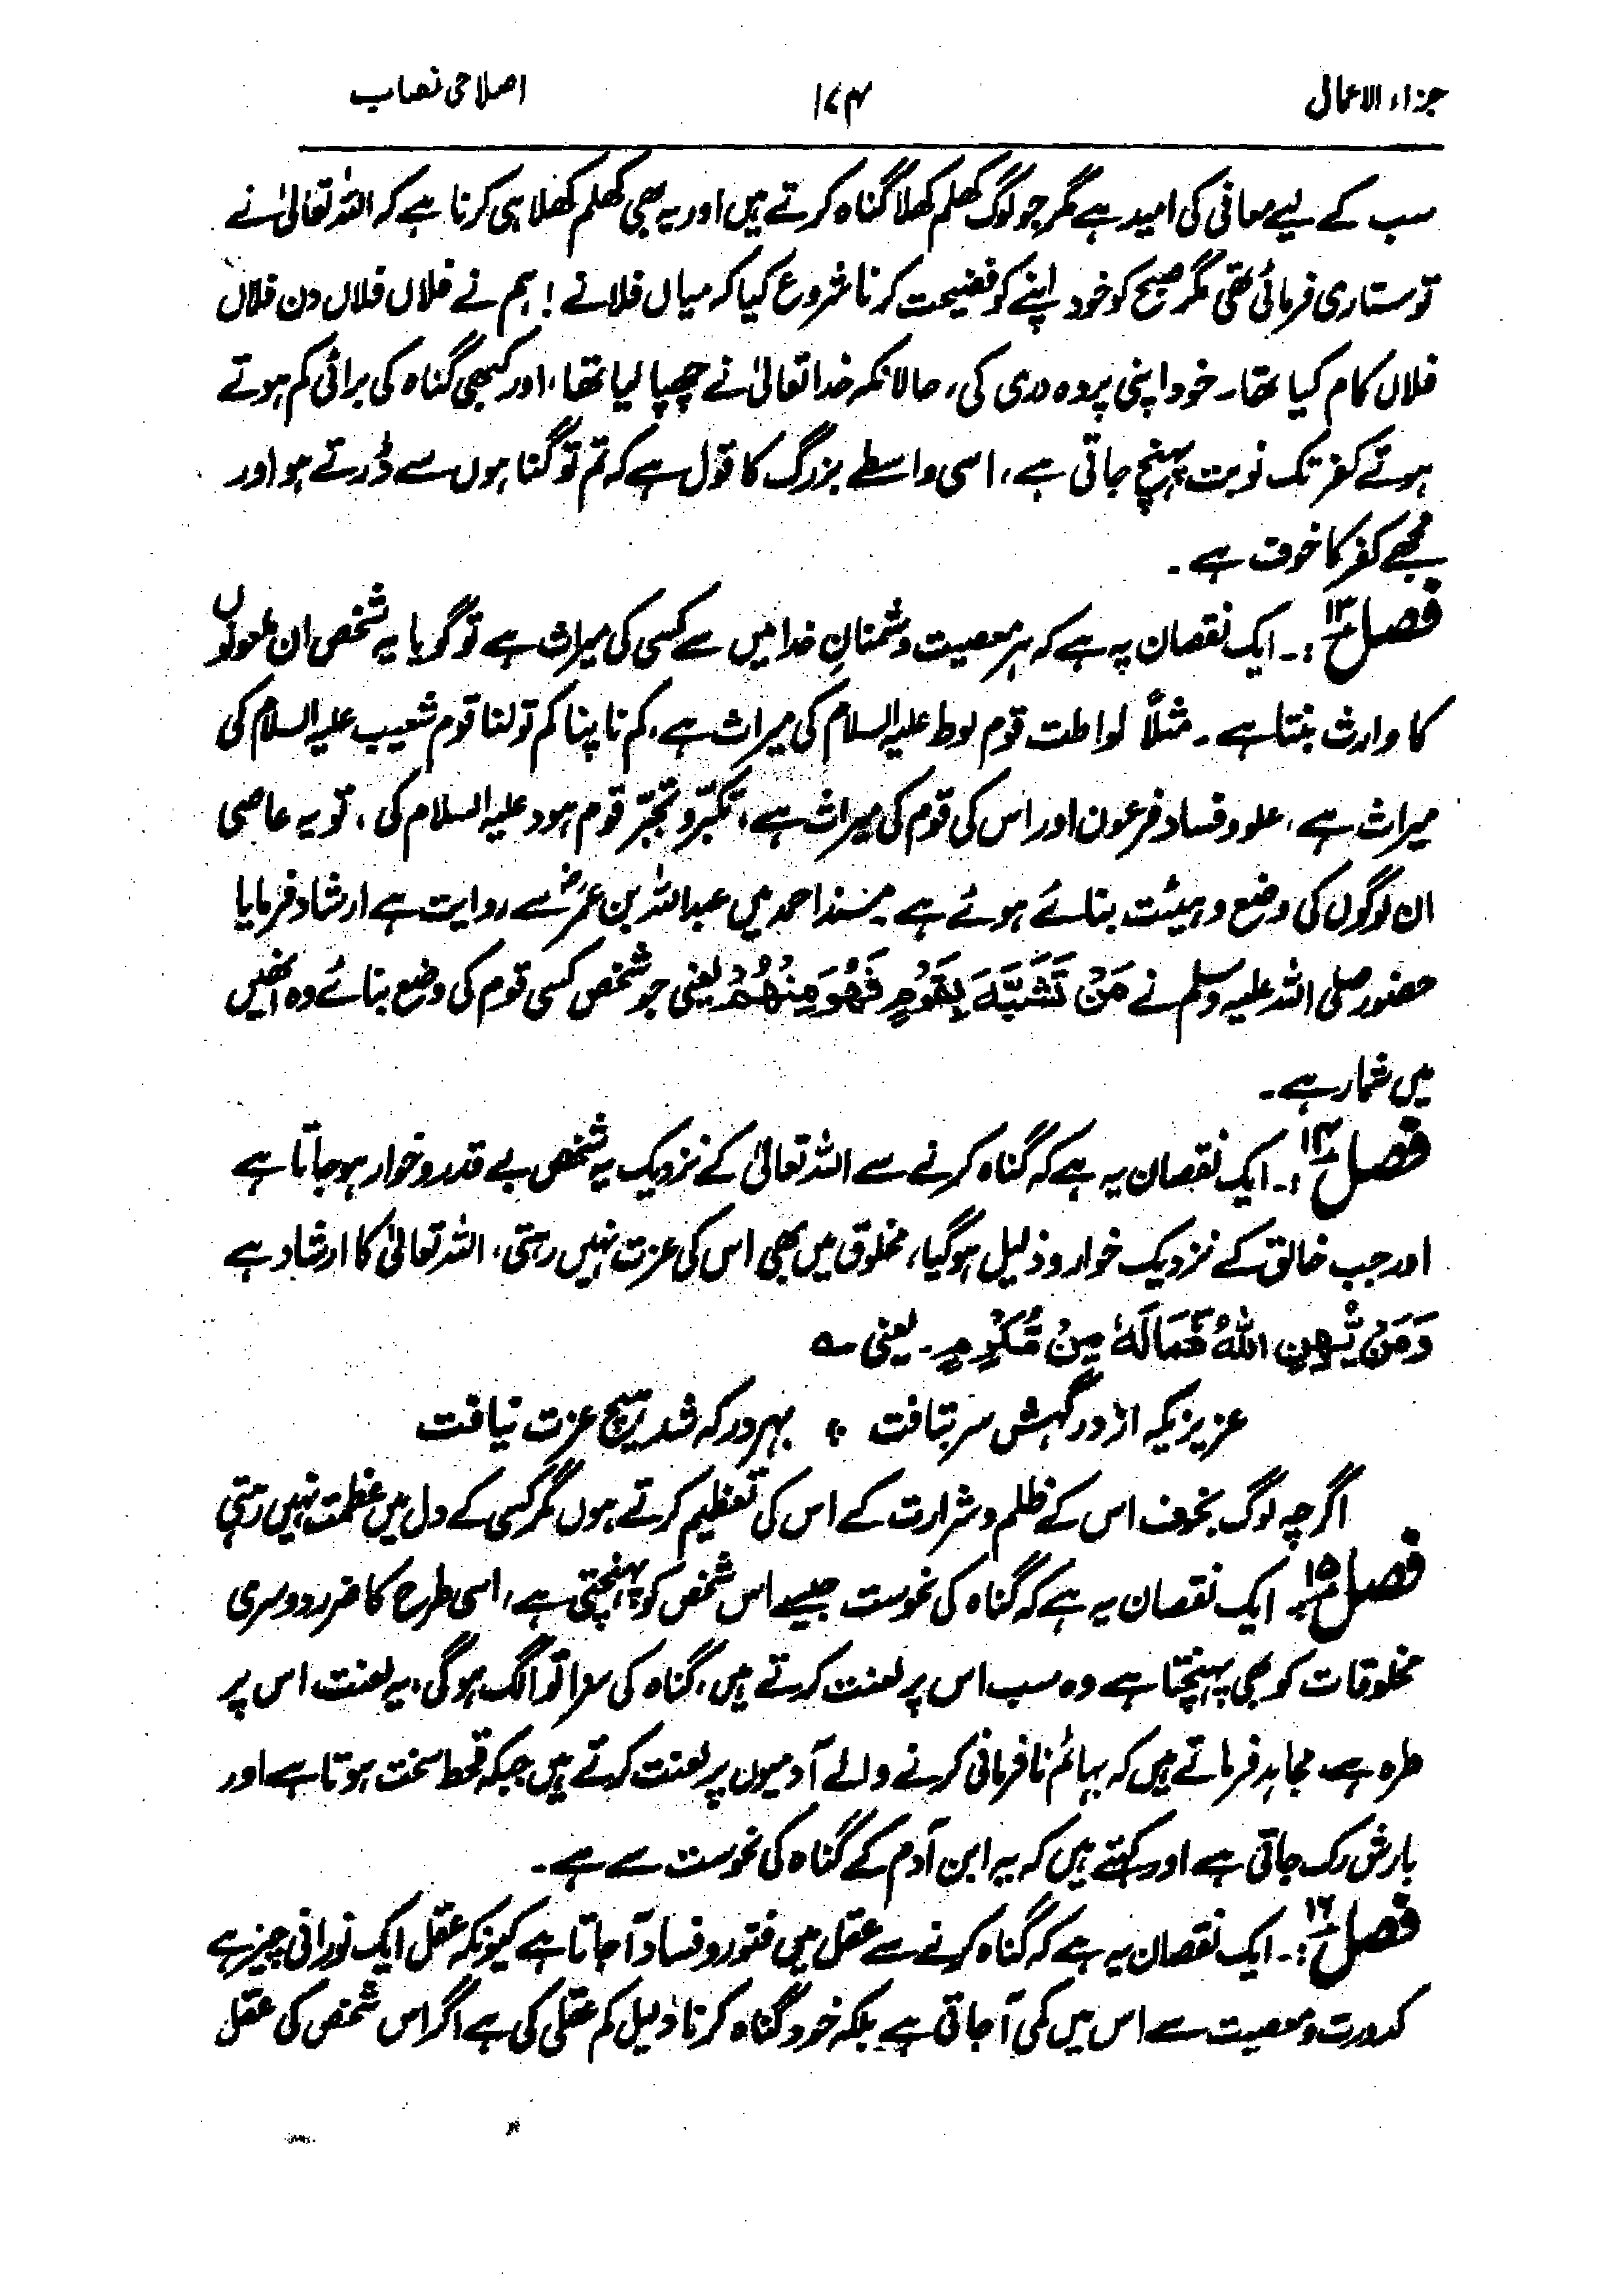 جزاء الاعمال ۱۷۴ اصلاحی نصاب
سب کے لیے معافی کی امید ہے مگر جو لوگ کھلم کھلا گناہ کرتے ہیں اور یہ بھی کھلم کھلا ہی کرنا ہے کہ اللہ تعالیٰ نے
تو ستاری فرمائی تھی مگر صبح کو خود اپنے کو فضیحت کرنا شروع کیا کہ میاں فلانے ! ہم نے فلاں فلاں دن فلاں
فلاں کام کیا تھا۔ خود اپنی پردہ دری کی، حالانکہ خدا تعالیٰ نے چھپا لیا تھا، اور کبھی گناہ کی برائی کم ہوتے
ہوتے کفر تک نوبت پہنچ جاتی ہے، اسی واسطے بزرگ کا قول ہے کہ تم تو گناہوں سے ڈرتے ہو اور
مجھے کفر کا خوف ہے۔
فصل ۱۳:۔ ایک نقصان یہ ہے کہ ہر معصیت دشمنانِ خدا میں سے کسی کی میراث ہے تو گویا یہ شخص ان ملعونوں
کا وارث بنتا ہے۔ مثلاً لواطت قوم لوط علیہ السلام کی میراث ہے، کم ناپنا کم تولنا قوم شعیب علیہ السلام کی
میراث ہے، علو و فساد فرعون اور اس کی قوم کی میراث ہے، تکبّر و تجبّر قوم ہود علیہ السلام کی، تو یہ عاصی
ان لوگوں کی وضع و ہیئت بنائے ہوئے ہے۔ مسند احمد میں عبداللہ بن عمرؓ سے روایت ہے ارشاد فرمایا
حضور صلی اللہ علیہ وسلم نے مَنْ تَشَبَّهَ بِقَوْمٍ فَهُوَ مِنْهُمْ یعنی جو شخص کسی قوم کی وضع بنائے وہ انھیں
میں شمار ہے۔
فصل ۱۴:۔ ایک نقصان یہ ہے کہ گناہ کرنے سے اللہ تعالیٰ کے نزدیک یہ شخص بے قدر و خوار ہو جاتا ہے
اور جب خالق کے نزدیک خوار و ذلیل ہو گیا، مخلوق میں بھی اس کی عزت نہیں رہتی، اللہ تعالیٰ کا ارشاد ہے
وَمَنْ یُّهِنِ اللهُ فَمَالَهٗ مِنْ مُّکْرِمٍ۔ یعنی ؎
عزیزیکہ از درگہش سر بتافت ٭ بہر در کہ شد ہیچ عزت نیافت
اگرچہ لوگ بخوف اس کے ظلم و شرارت کے اس کی تعظیم کرتے ہوں مگر کسی کے دل میں عظمت نہیں رہتی
فصل ۱۵:۔ ایک نقصان یہ ہے کہ گناہ کی نحوست جیسے اس شخص کو پہنچتی ہے، اسی طرح کا ضرر دوسری
مخلوقات کو بھی پہنچتا ہے وہ سب اس پر لعنت کرتے ہیں، گناہ کی سزا تو الگ ہو گی، یہ لعنت اس پر
طرہ ہے، مجاہد فرماتے ہیں کہ بہائم نافرمانی کرنے والے آدمیوں پر لعنت کرتے ہیں جبکہ قحط سخت ہوتا ہے اور
بارش رک جاتی ہے اور کہتے ہیں کہ یہ ابن آدم کے گناہ کی نحوست سے ہے۔
فصل ۱۶:۔ ایک نقصان یہ ہے کہ گناہ کرنے سے عقل میں فتور و فساد آ جاتا ہے کیونکہ عقل ایک نورانی چیز ہے
کدورت و معصیت سے اس میں کمی آ جاتی ہے بلکہ خود گناہ کرنا دلیل کم عقلی کی ہے اگر اس شخص کی عقل